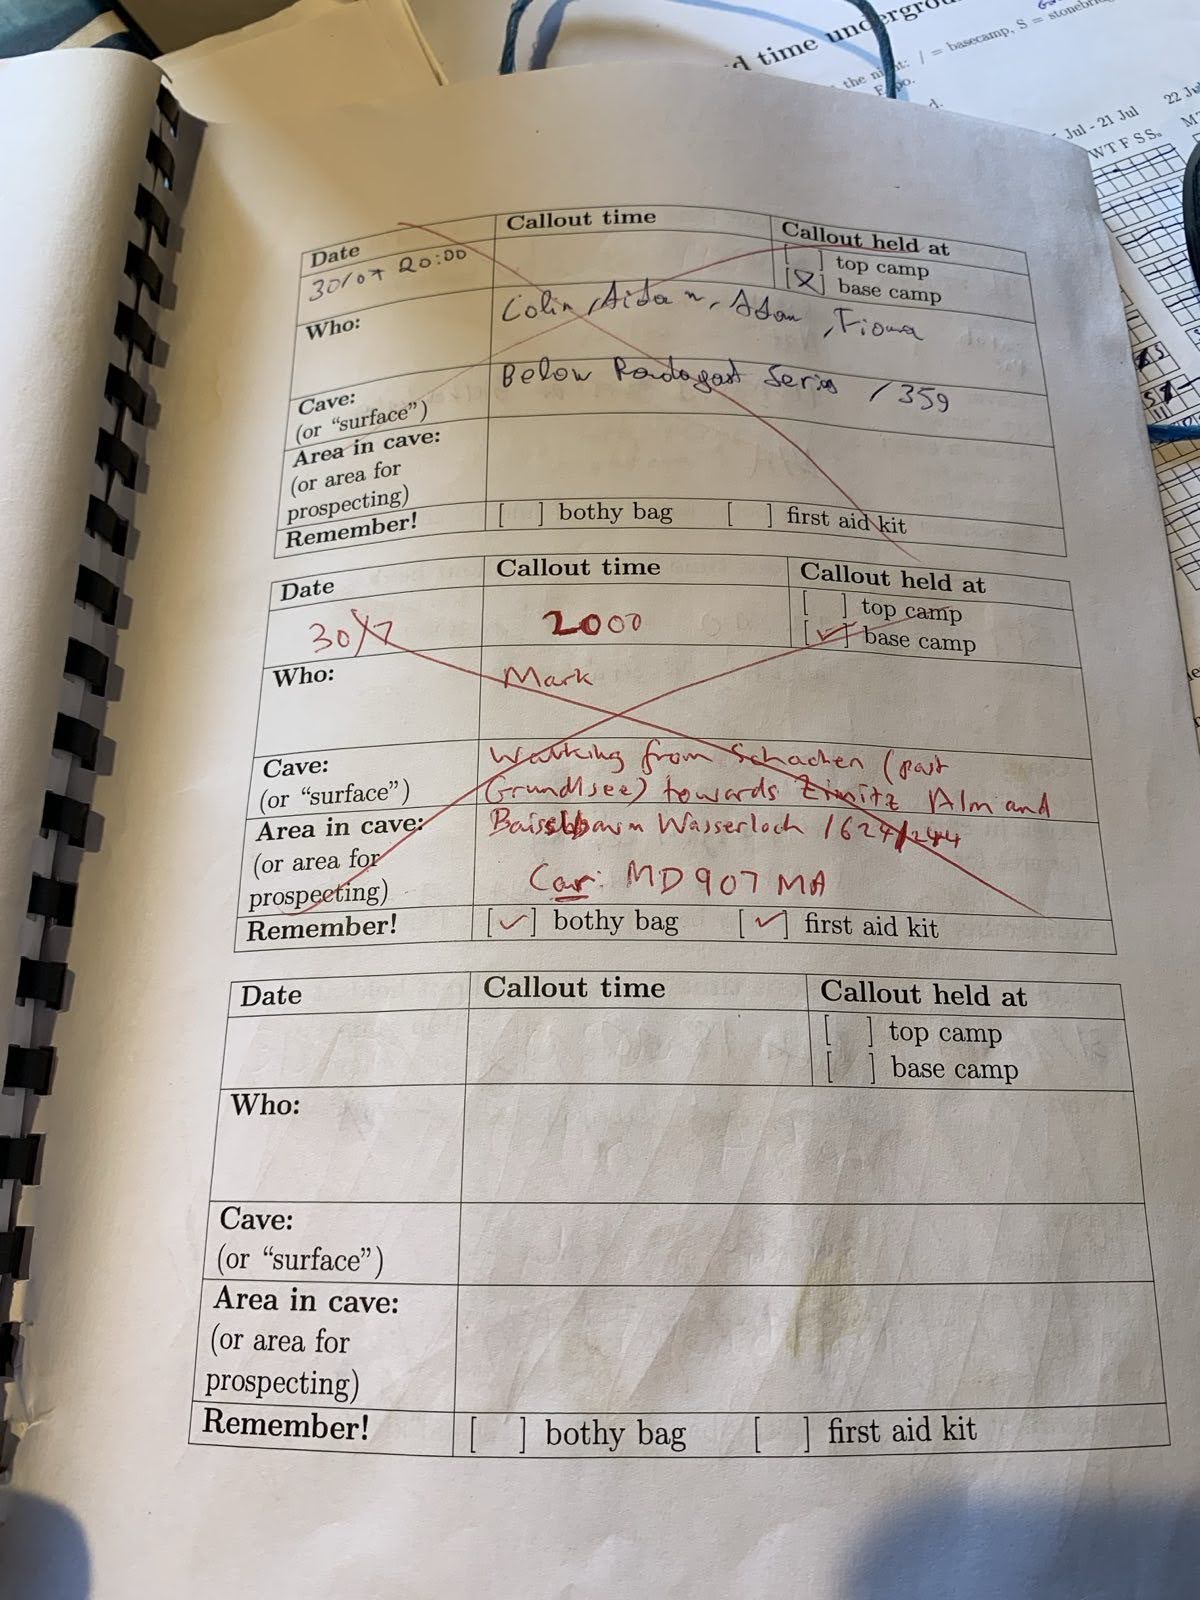 d time undergrou
the night: / = basecamp, S = stonebri
Jul - 21 Jul 22 Ju
W T F S S
Date Callout time Callout held at
30/07 20:00 [ ] top camp
[X] base camp
Who: Colin, Aidan, Adam, Fiona
Cave: Below Radagast Series / 359
(or “surface”)
Area in cave:
(or area for
prospecting)
Remember! [ ] bothy bag [ ] first aid kit
Date Callout time Callout held at
30/7 2000 [ ] top camp
[✓] base camp
Who: Mark
Cave: Walking from Schachen (past
(or “surface”) Grundlsee) towards Zimitz Alm and
Area in cave: Wasserloch 1624/244
(or area for
prospecting) Car: MD907 MA
Remember! [✓] bothy bag [✓] first aid kit
Date Callout time Callout held at
[ ] top camp
[ ] base camp
Who:
Cave:
(or “surface”)
Area in cave:
(or area for
prospecting)
Remember! [ ] bothy bag [ ] first aid kit